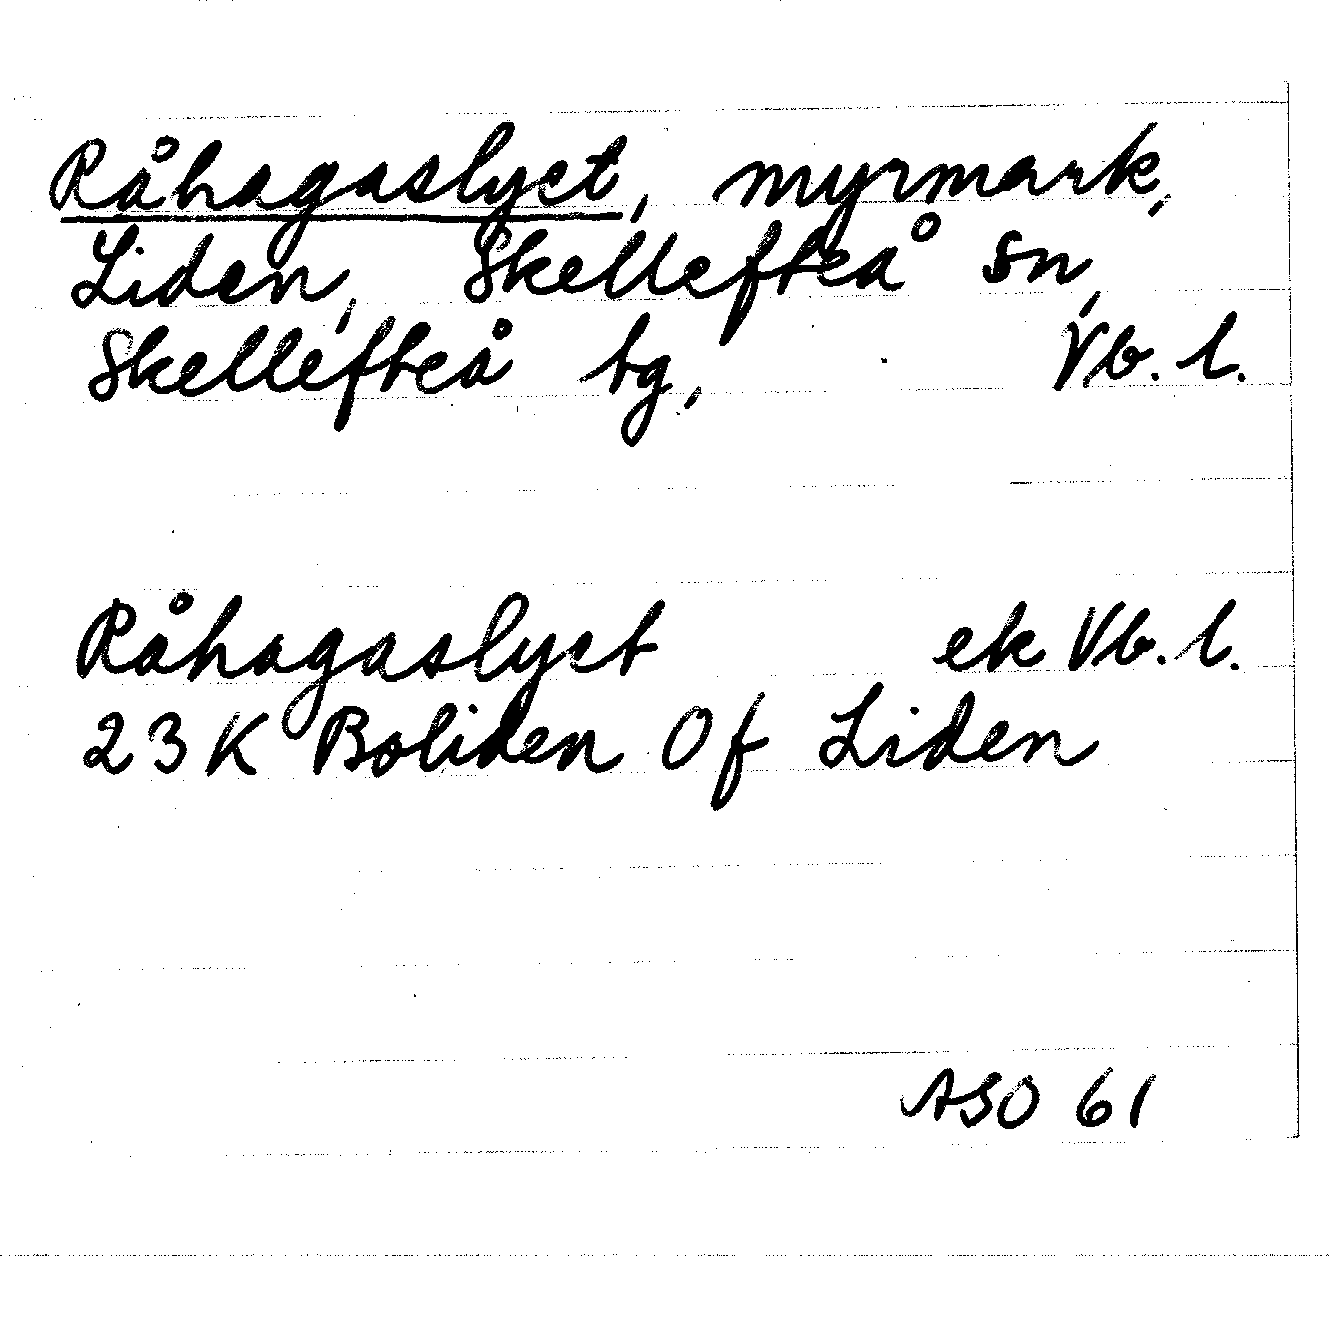 Råhagaslyct, myrmark,
Liden, Skellefteå sn,
Skellefteå tg, Vb. l.
Råhagaslyct ek Vb. l.
23K Boliden 0f Liden
ASO 61